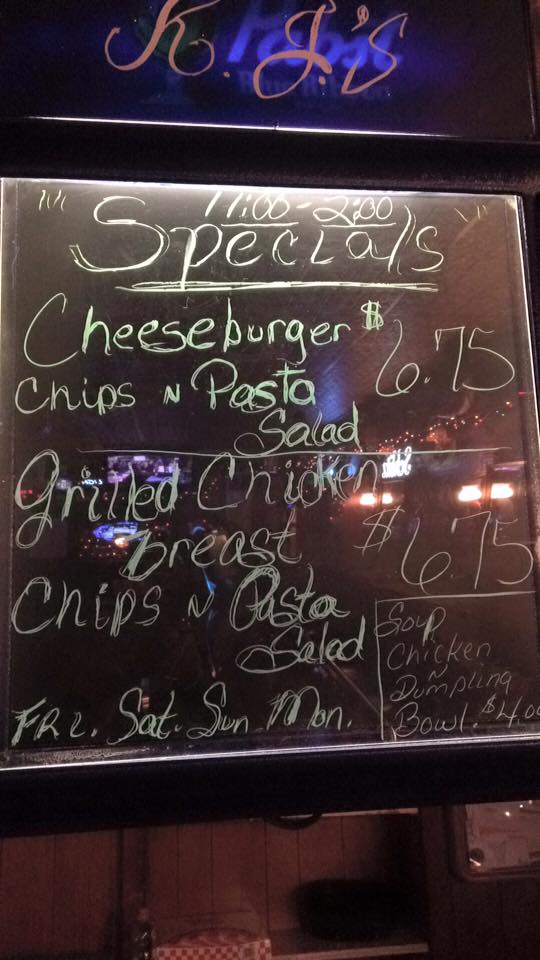 K. J.'S
Pabst
11:00 - 2:00
Specials
Cheeseburger $6.75
Chips N Pasta
Salad
Grilled Chicken
Breast $6.75
Chips N Pasta
Salad
Soup
Chicken
N
Dumpling
Bowl. $4.00
FRI. Sat. Sun Mon.